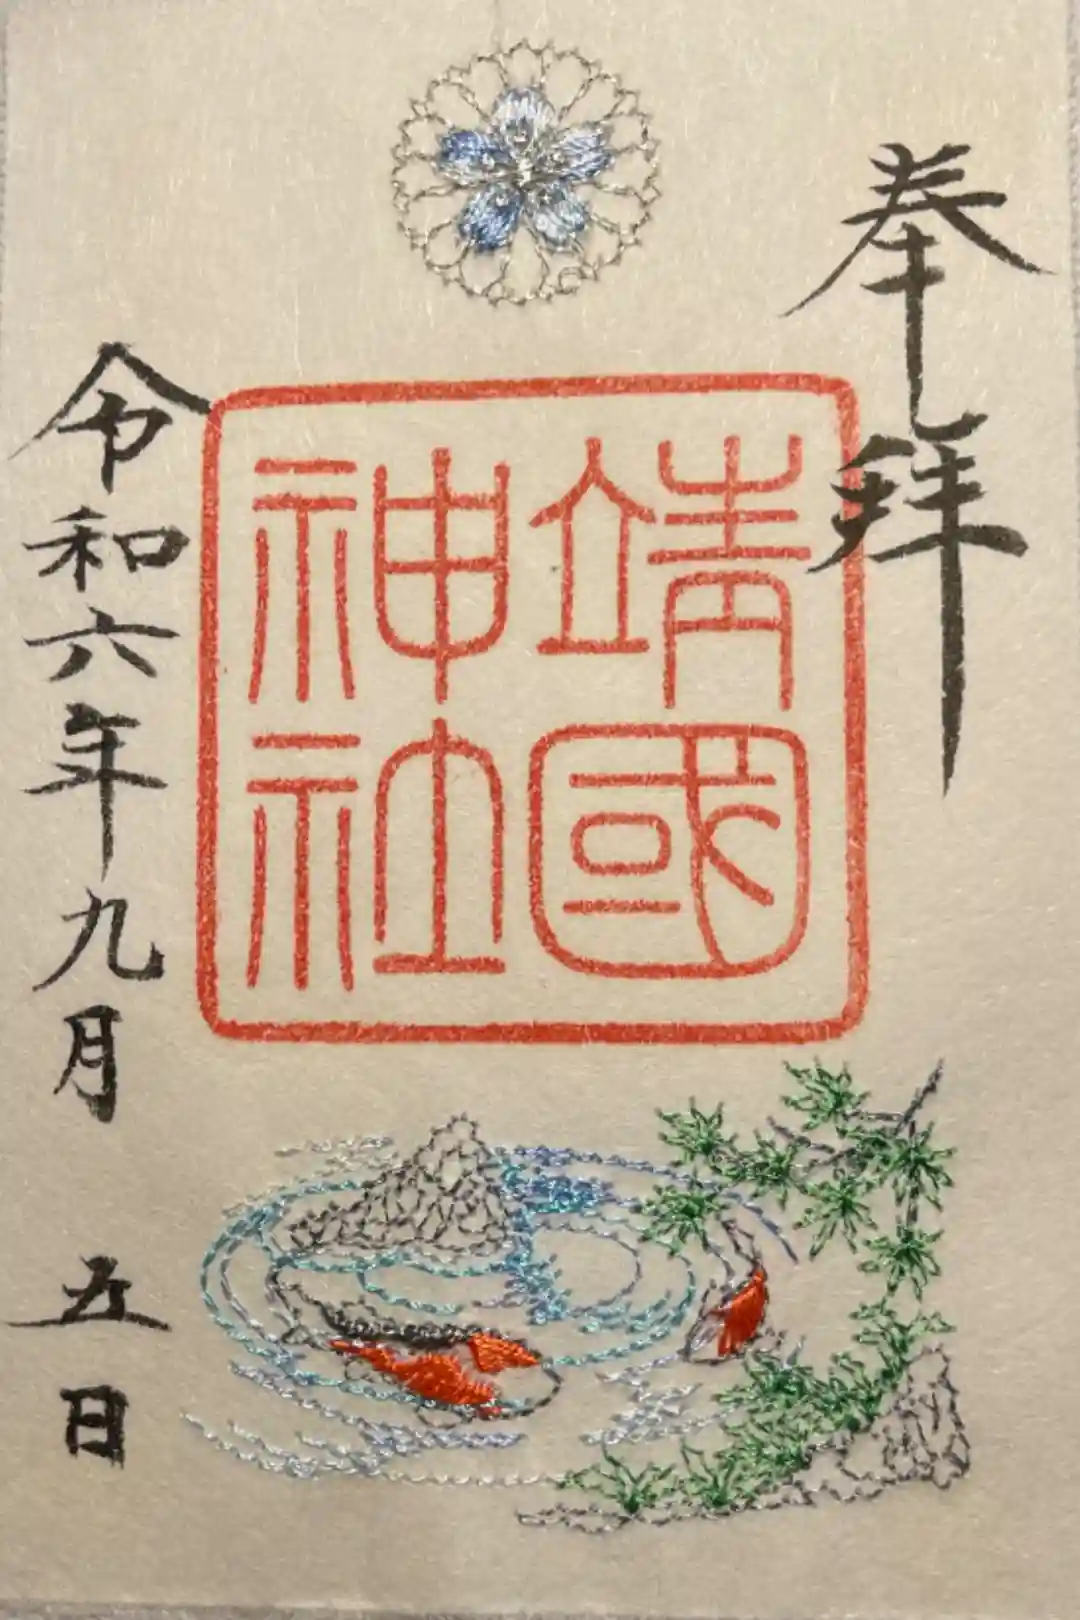 奉拝
靖國
神社
令和六年九月五日